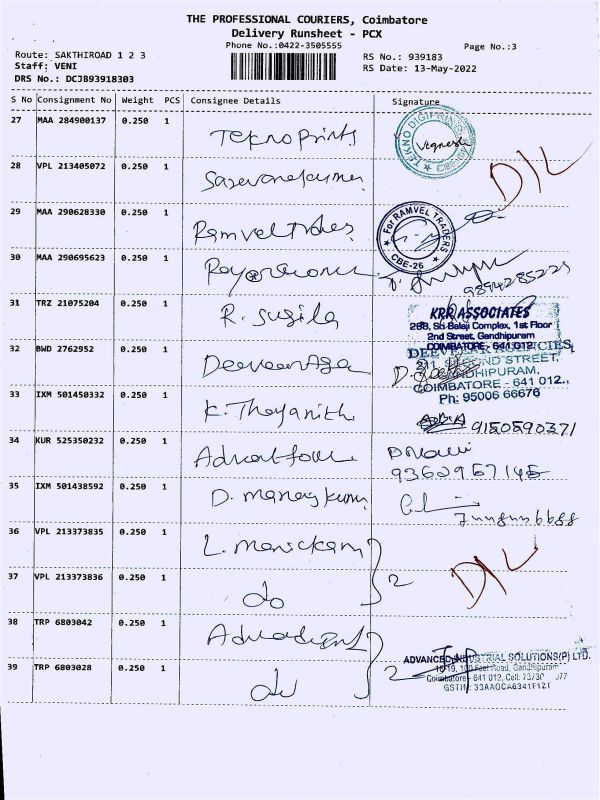 THE PROFESSIONAL COURIERS, Coimbatore
Delivery Runsheet - PCX
Phone No.:0422-3505555
Page No.:3
Route: SAKTHIROAD 1 2 3
Staff: VENI
DRS No.: DCJB93918303
RS No.: 939183
RS Date: 13-May-2022
S No Consignment No Weight PCS Consignee Details Signature
27 MAA 284900137 0.250 1 Tekno Prints
TEKNO DIGIPRINTS
Vegnesh
28 VPL 213405072 0.250 1
D/L
29 MAA 290628330 0.250 1 Ramvel Trades
For RAMVEL TRADERS
CBE-26
30 MAA 290695623 0.250 1
31 TRZ 21075204 0.250 1 R. Sugila
KRR ASSOCIATES
288, Sri Balaji Complex, 1st Floor
2nd Street, Gandhipuram
COIMBATORE - 641 012
32 BWD 2762952 0.250 1
SECOND STREET,
GANDHIPURAM,
COIMBATORE - 641 012.,
Ph: 95006 66676
33 IXM 501450332 0.250 1 K. Thayanith
9150590371
34 KUR 525350232 0.250 1
35 IXM 501438592 0.250 1
36 VPL 213373835 0.250 1 L. Manickam
2
D/L
37 VPL 213373836 0.250 1 do
38 TRP 6803042 0.250 1
2
ADVANCED INDUSTRIAL SOLUTIONS(P) LTD.
100 Feet Road, Gandhipuram
Coimbatore - 641 012, Cell:
39 TRP 6803028 0.250 1 do
GSTIN: 33AAOCA6341F1ZT